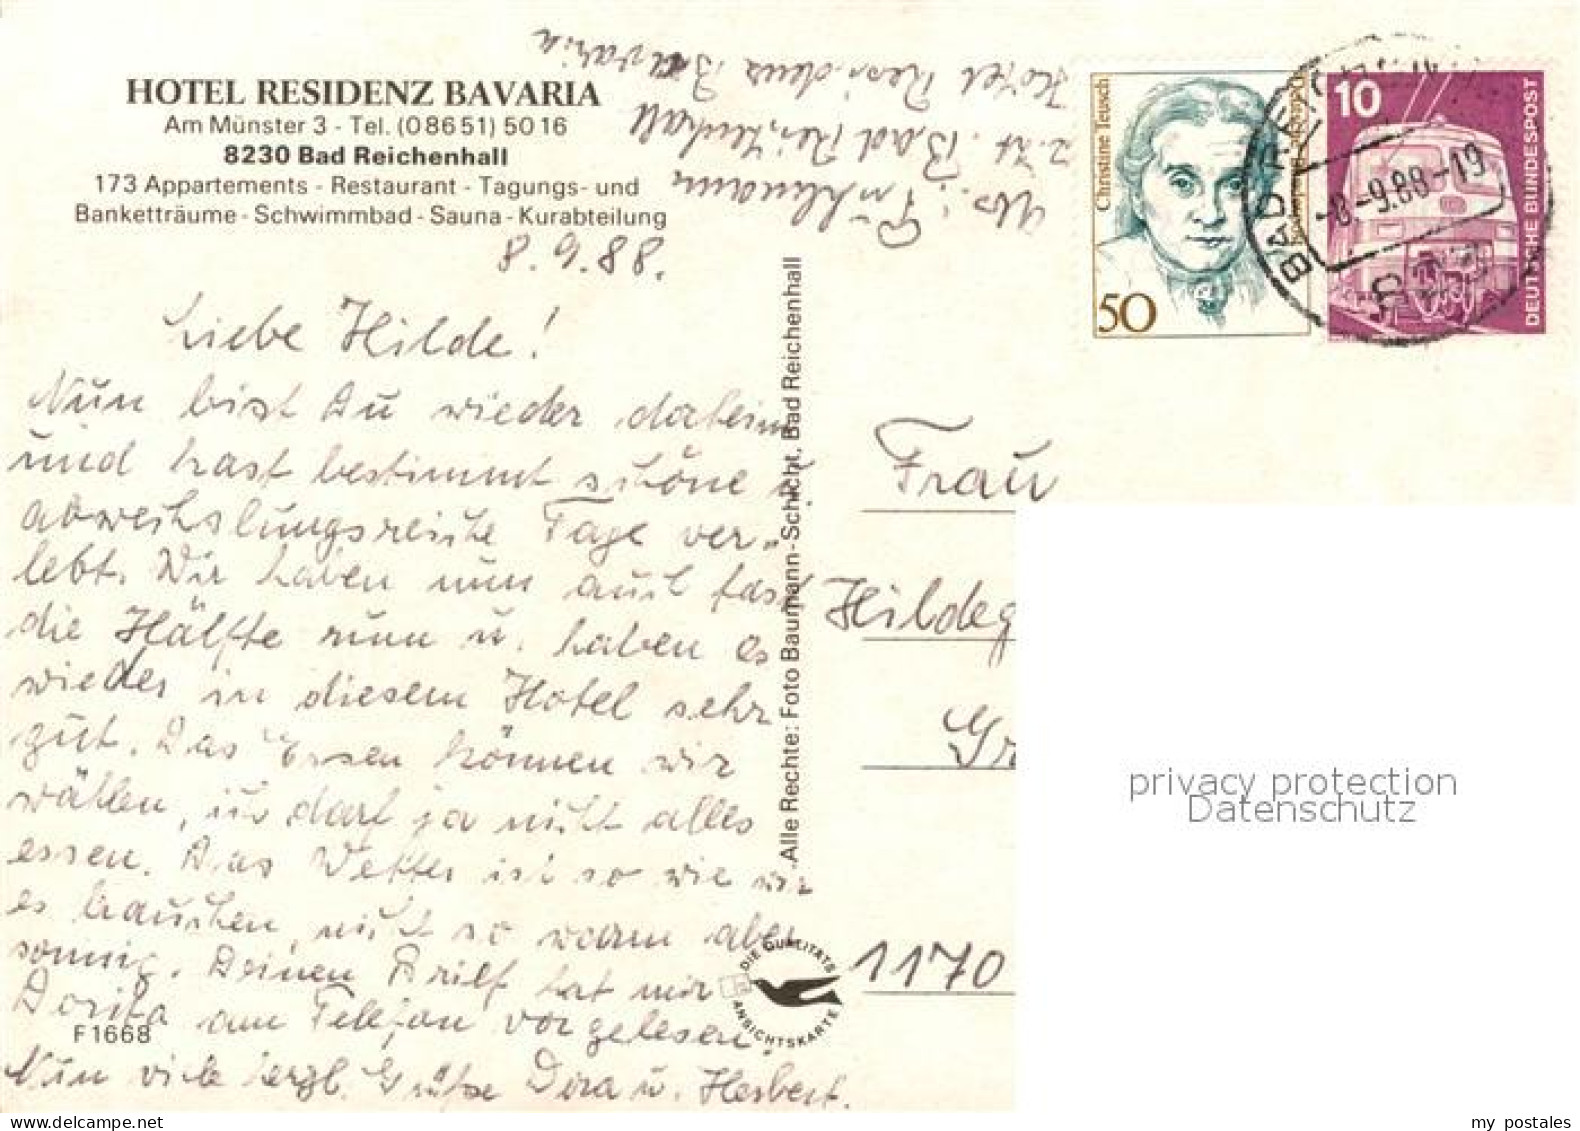 HOTEL RESIDENZ BAVARIA
Am Münster 3 - Tel. (08651) 5016
8230 Bad Reichenhall
173 Appartements - Restaurant - Tagungs- und
Banketträume - Schwimmbad - Sauna - Kurabteilung
8.9.88.
Liebe Hilde!
Nun bist Du wieder daheim
und hast bestimmt schöne u.
abwechslungsreiche Tage ver-
lebt. Wir haben nun auch fast
die Hälfte rum u. haben es
wieder in diesem Hotel sehr
gut. Das Essen können wir
wählen, ich darf ja nicht alles
essen. Das Wetter ist so wie wir
es brauchen, nicht so warm aber
sonnig. Deinen Brief hat mir
Dorita am Telefon vorgelesen.
Nun viele herzl. Grüße Dora u. Herbert.
F1668
Abs.:
z.Zt. Bad Reichenhall
Hotel Residenz Bavaria
Alle Rechte: Foto Baumann-Schicht, Bad Reichenhall
DIE QUALITÄTS
ANSICHTSKARTE
Christine Teusch
50
Deutsche Bundespost
10
DEUTSCHE BUNDESPOST
BAD REICHENHALL
-8.-9.88-19
Frau
Hildeg
Gr
1170
privacy protection
Datenschutz
my postales